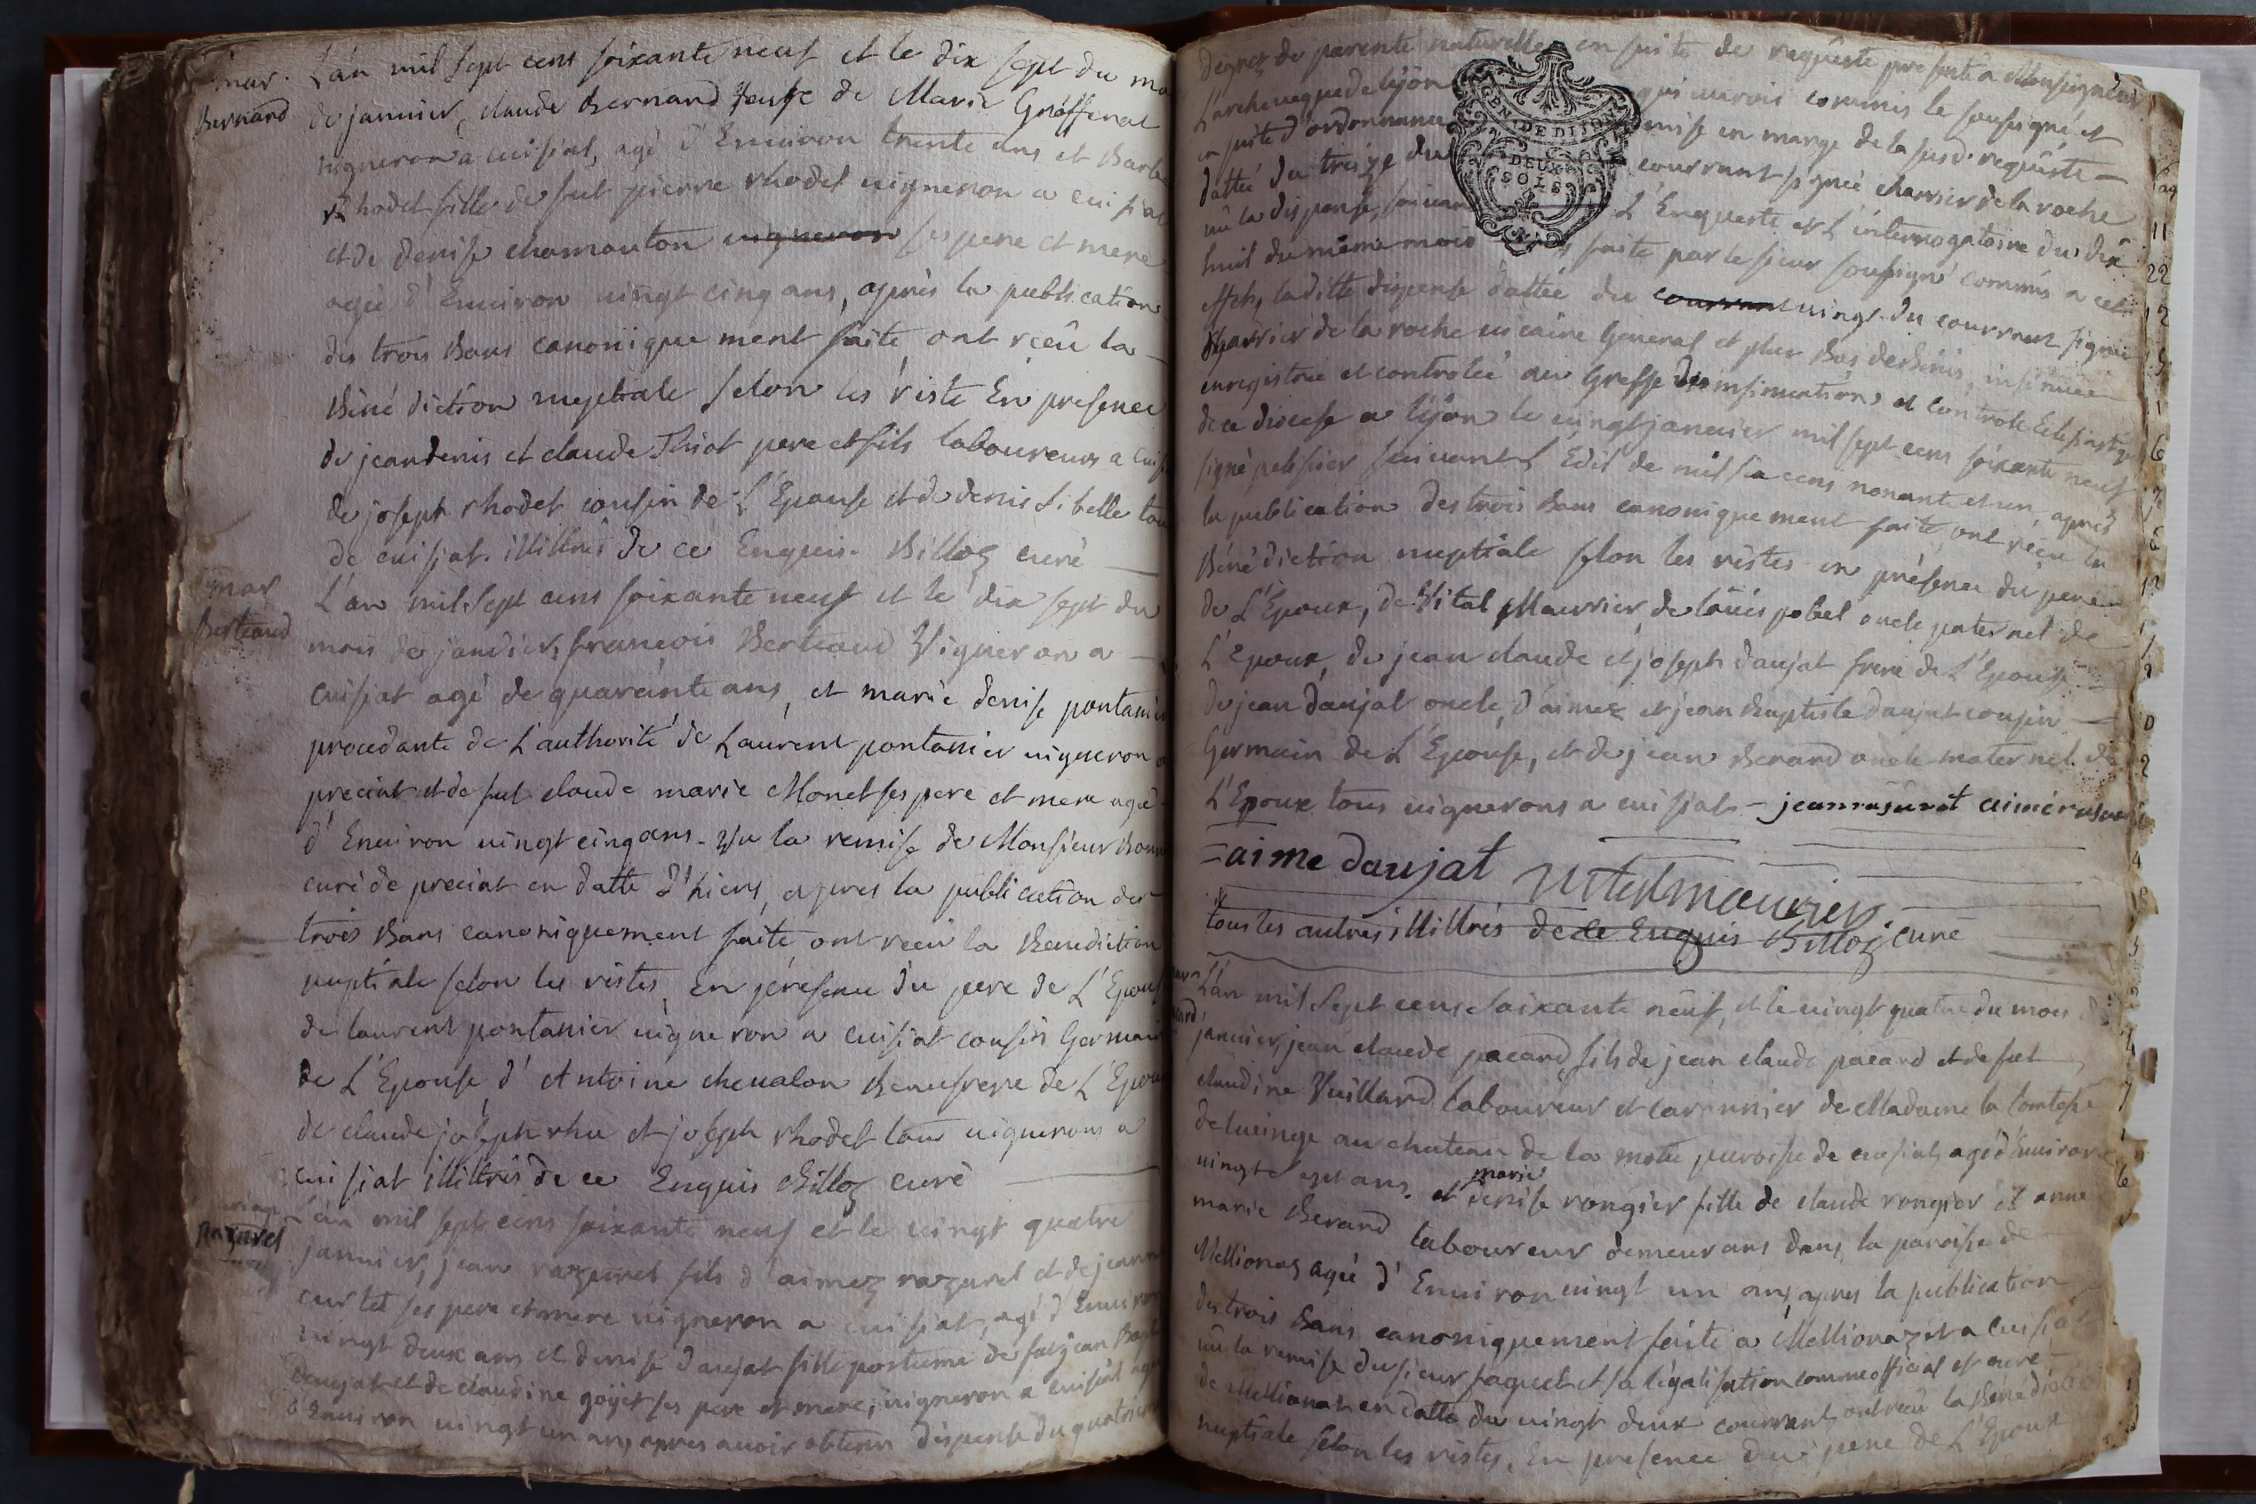 mar.
Bernard
L'an mil sept cens soixante neuf et le dix sept du mo
de janvier, claude Bernard veufe de Marie Gréffenat
vigneron a cuisiat, agé d'Environ trente ans et Barbe
Rhodet fille de fut pierre rhodet vigneron a cuisiat
et de denise chamouton vigneron ses pere et mere
agée d'Environ vingt cinq ans, après la publication
des trois Bans canoniquement faite, ont rçeu la
Béné diction nuptiale selon les riste En presence
de jeandenis et claude Thiot pere et fils laboureurs a cuis
de joseph rhodet cousin de L'Epouse et de denis Libelle tou
de cuisiat. illittrés de ce Enquis. Billoz curé
mar
Bertraud
L'an mil sept cens soixante neuf et le dix sept du
mois de janvier, francois Bertraud Vigneron a
cuisiat agé de quarante ans, et marie denise pontanier
procedante de L'authorité de Laurent pontanier vigneron a
preciat et de fut claude marie Monet ses pere et mere agée
d'Environ vingt cinq ans. Vu la remise de Monsieur
curé de preciat en datte d'hiers, apres la publication des
trois Bans canoniquement faite, ont reçu la Benediction
nuptiale selon les ristes, En présence du pere de L'Epouse
de laurent pontanier vigneron a cuisiat cousin Germain
de L'Epouse, d'Antoine chevalon Beaufrere de L'Epou
de claude joseph rhu et joseph rhodet tous vignerons a
cuisiat illittrés de ce Enquis Billoz curé
razurel
L'an mil sept cens soixante neuf et le vingt quatre
janvier, jean razurel fils d'aimez razurel et de jeanne
curtet ses pere et mere vigneron a cuisiat, agé d'Environ
vingt deux ans et denise daujat fille postume de fut jean Bapt
daujat et de claudine goyet ses pere et mere, vigneron a cuisiat agée
d'Environ vingt un ans apres avoir obtenu dispense du quatrieme
dégrez de parenté naturelle, en suite de requeste presenté a Monseigneur
L'archevaque de Lÿon qui auroit commis le sousigné et
en suite d'ordonnance mise en marge de la susd. requéste
dattée du treize du courrant signée charrier de la roche
vû la dispense, L'Enqueste et L'interrogatoire du dix
huit du même mois faite par le sieur sousigné commis a cet
effets, laditte dispense dattée du courrant vingt du courrant signée
charrier de la roche vicaire General et plus Bas desBinis, insinuée
enregistrée et controlée au Greffe des insinuations et controle Eclesiastiq
de ce diocese a Lÿon le vingt janvier mil sept cens soixante neuf
signé pelissier suivant L'Edit de mil six cens nonante et un, après
la publication des trois Bans canoniquement faite, ont réçu la
Béné diction nuptiale selon les ristes en présence du pere
de L'Epoux, de Vital Maurier, de loüis pobel oncle paternel de
L'Epoux, de jean claude et joseph daujat frere de L'Epouse
de jean daujat oncle, d'aimez et jean Baptiste daujat cousin
Germain de L'Epouse, et de jean Berard oncle maternel de
L'Epoux tous vignerons a cuisiat - jean rasurét aimé rasurel
aime daujat
vitalmaurier
tous les autres illittrés de ce Enquis Billoz curé
L'an mil sept cens soixante neuf, et le vingt quatre du mois de
janvier, jean claude pacard, fils de jean claude pacard et de fut
claudine Vuillard laboureur et caronnier de Madame la Comtesse
de Lucinge au chateau de la motte, paroisse de cuisiat, agé d'Environ
vingt sept ans. et marie
denise rongier fille de claude rongier et anne
marie Berard laboureur démeurans dans la paroisse de
Méllionas agée d'Environ vingt un ans, apres la publication
des trois Bans canoniquement faite a Méllionaz et a cuisiat
vû la remise du sieur faguet et sa légalisation comme official et curé
de Méllionaz en datte du vingt deux courrant, ont réçu la Bénédiction
nuptiale selon les ristes, En presence du pere de L'Epoux
GEN. DE DIJON
DEUX
SOLS